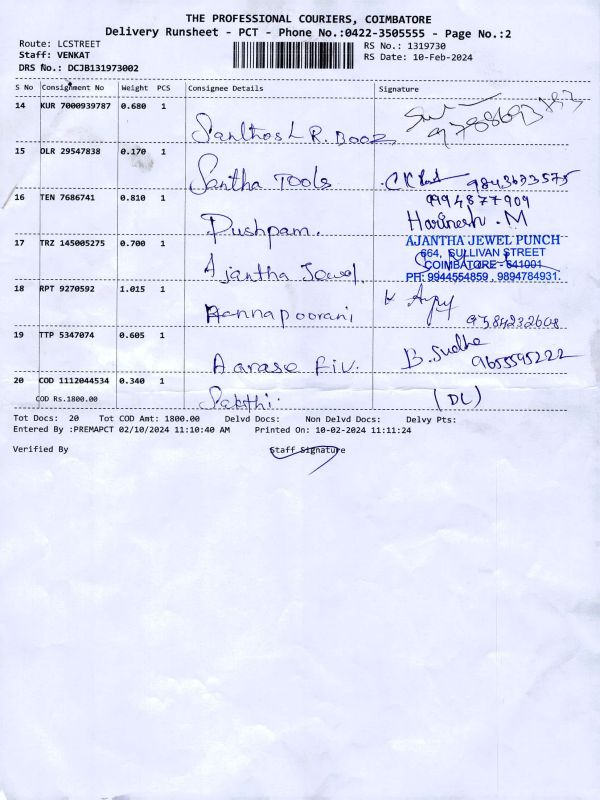 THE PROFESSIONAL COURIERS, COIMBATORE
Delivery Runsheet - PCT - Phone No.:0422-3505555 - Page No.:2
Route: LCSTREET
Staff: VENKAT
DRS No.: DCJB131973002
RS No.: 1319730
RS Date: 10-Feb-2024
S No Consignment No Weight PCS Consignee Details Signature
14 KUR 7000939787 0.680 1
Santhosh R.
15 DLR 29547838 0.170 1
Santha Tools 9843673575
16 TEN 7686741 0.810 1 9994877909
Pushpam. Harinesh . M
17 TRZ 145005275 0.700 1 AJANTHA JEWEL PUNCH
664, SULLIVAN STREET
Ajantha Jewel COIMBATORE - 641001.
PH: 9944554859, 9894784931.
18 RPT 9270592 1.015 1
Annapoorani 9384232608
19 TTP 5347074 0.605 1 B. Sudha
9655595222
20 COD 1112044534 0.340 1
COD Rs.1800.00 Sakthi. (DL)
Tot Docs: 20 Tot COD Amt: 1800.00 Delvd Docs: Non Delvd Docs: Delvy Pts:
Entered By :PREMAPCT 02/10/2024 11:10:40 AM Printed On: 10-02-2024 11:11:24
Verified By Staff Signature